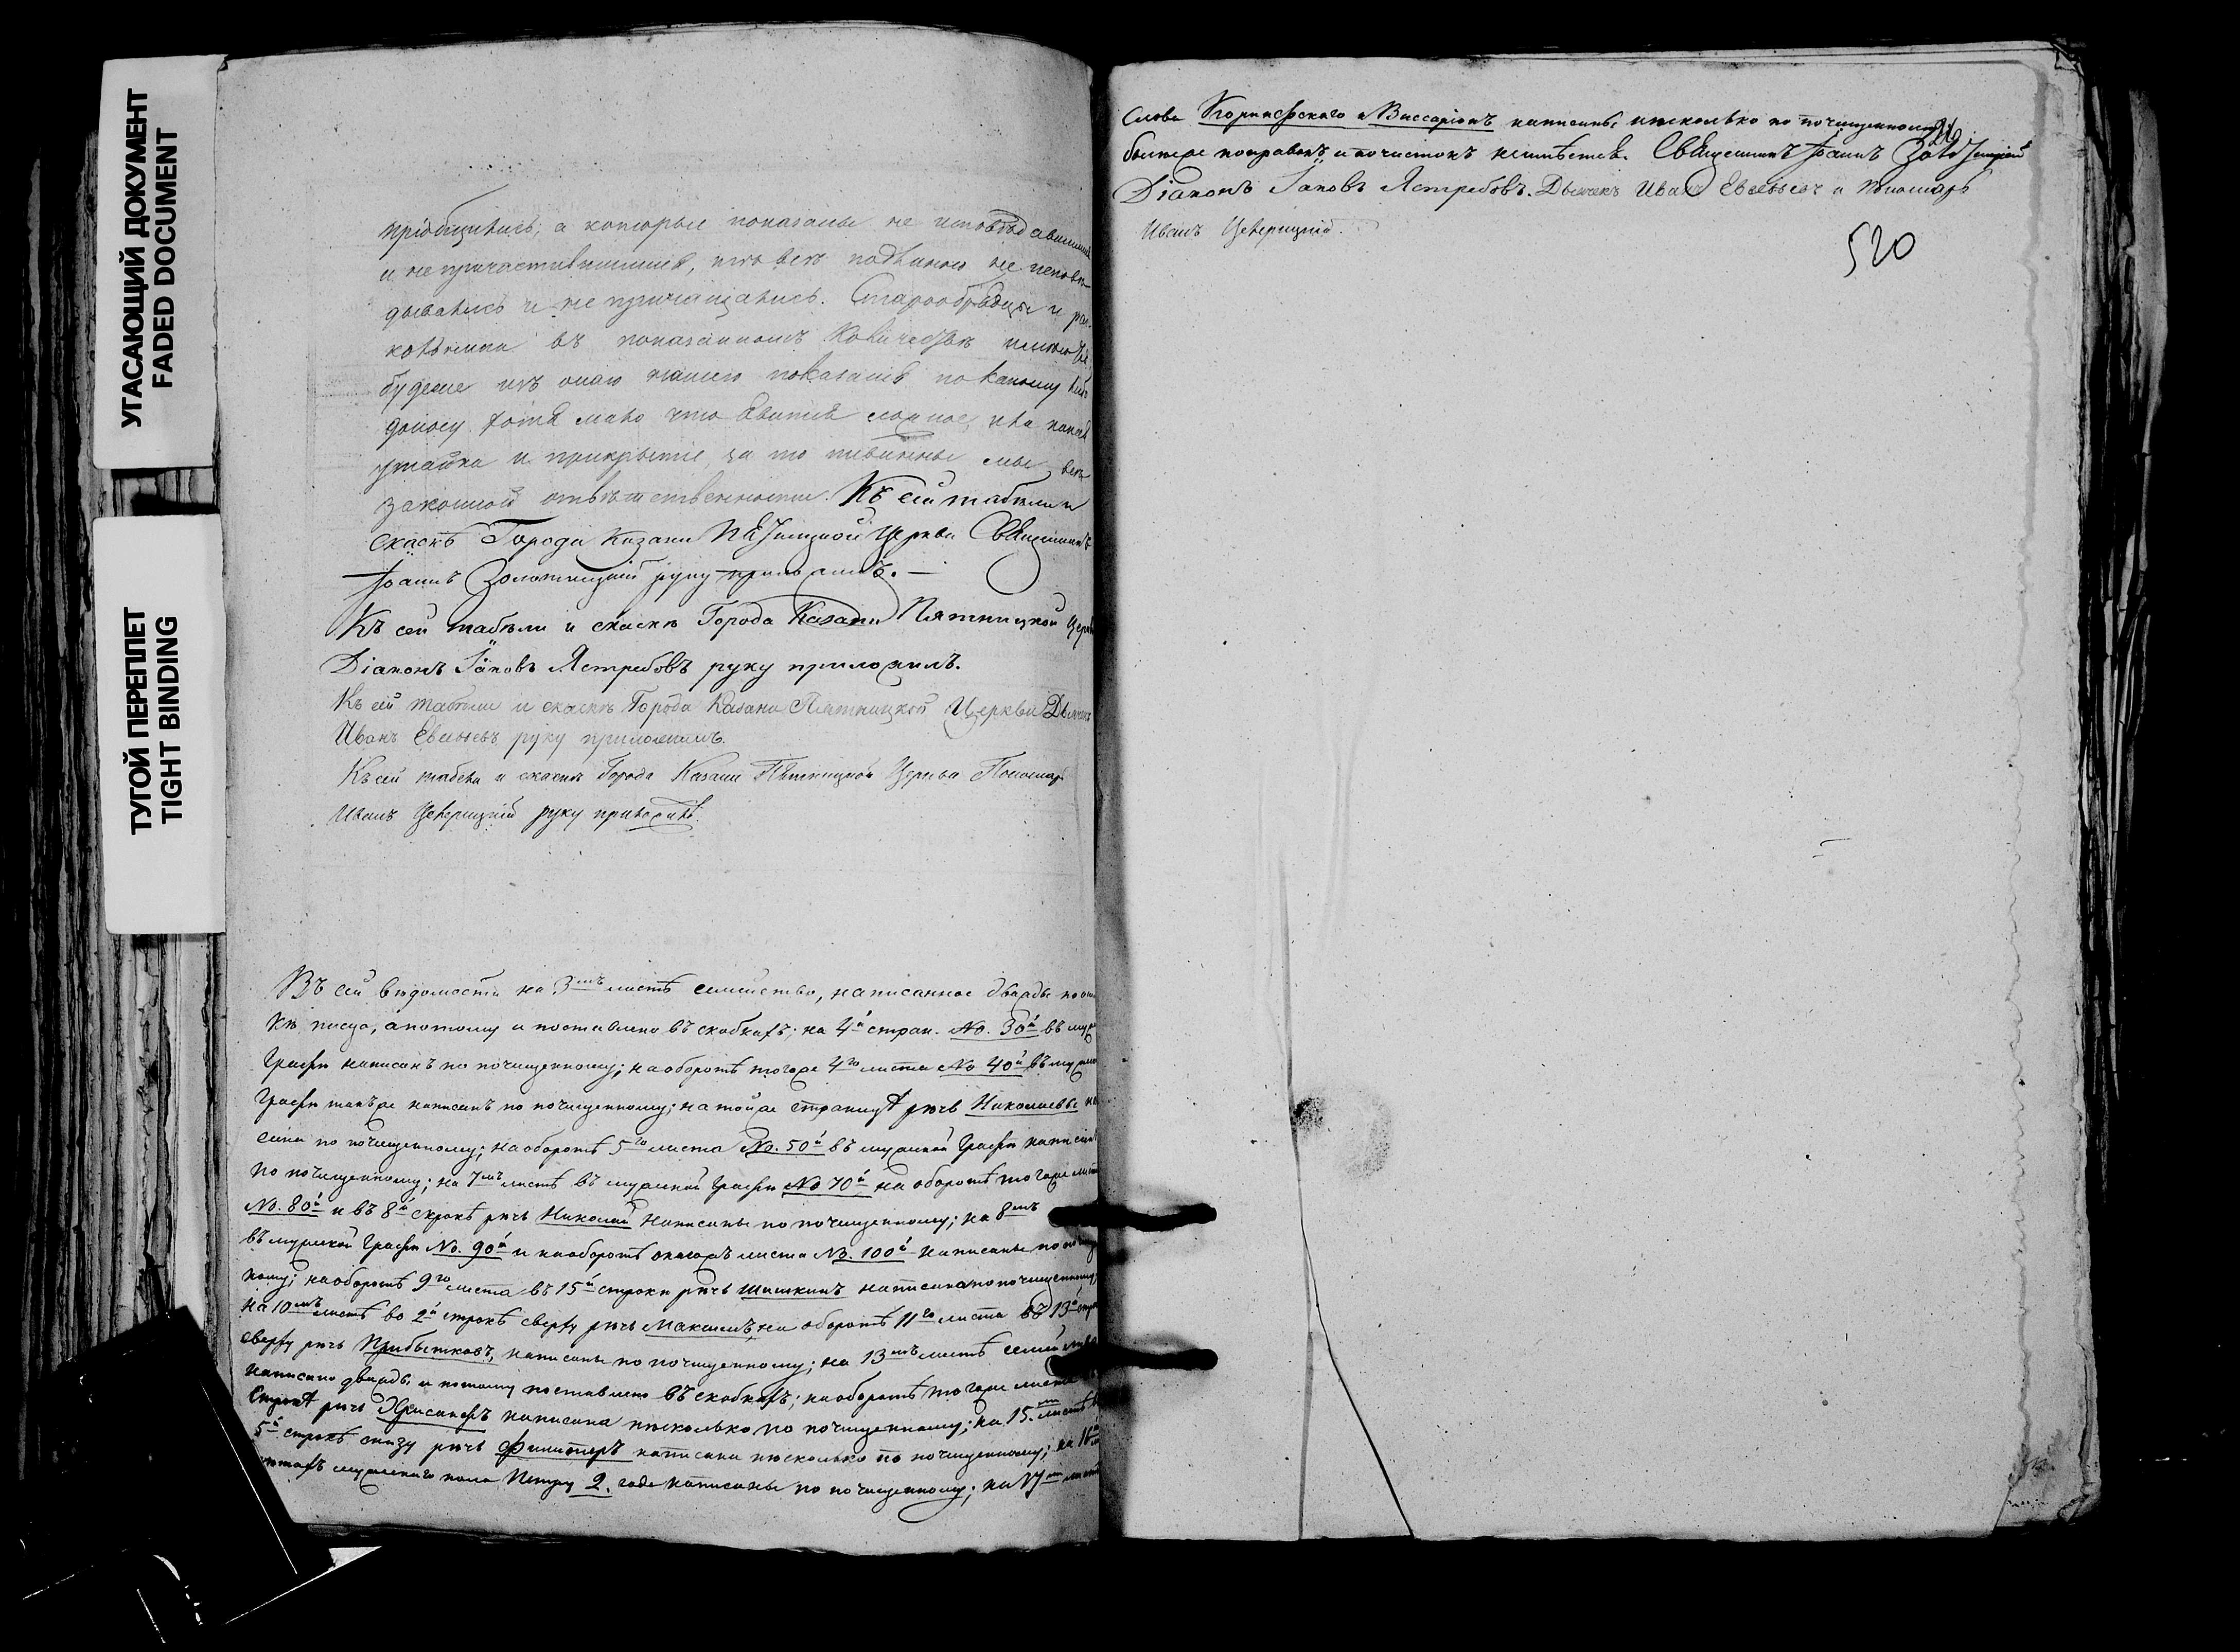 УГАСАЮЩИЙ ДОКУМЕНТ
FADED DOCUMENT
ТУГОЙ ПЕРЕПЛЕТ
TIGHT BINDING
пріобщились; а которые показаны не исповѣдавшимися
и не причастившимися, тѣ всѣ подлинно не исповѣ-
дывались и не причащались. Старообрядцы и рас-
кольники въ показанномъ количествѣ
будеже изъ онаго нашего показанія по какому либо
доносу хотя мало что явится ложное, или какая
утайка и прикрытіе, за то повинны мы всей
законной отвѣтственности. Къ сей табели и
скаскѣ Города Казани Пятницкой Церкви Священникъ
Іоаннъ Золотницкій руку приложилъ.
Къ сей табѣли и скаскѣ Города Казани Пятницкой Церкви
Діаконъ Іаковъ Ястребовъ руку приложилъ.
Къ сей табѣли и скаскѣ Города Казани Пятницкой Церкви Дьячекъ
Иванъ Евсевьевъ руку приложилъ.
Къ сей табели и скаскѣ Города Казани Пятницкой Церкви Пономарь
Иванъ руку приложилъ.
Въ сей вѣдомости на 3мъ листѣ семейство, написанное дважды по
кѣ писца, а потому и поставлено въ скобкахъ; на 4й стран. No. 30й въ муж
графѣ написанъ по почищенному; на оборотѣ тогоже 4го листа No 40й въ мужской
графѣ такъже написанъ по почищенному; на тойже страницѣ рѣчь Николаевы на
сана по почищенному; на оборотѣ 5го листа No. 50й въ мужской графѣ написанъ
по почищенному; на 7мъ листѣ въ мужской графѣ No 70й на оборотѣ тогоже листа
No. 80й и въ 8й строкѣ рѣчь Николай написаны по почищенному; на 8мъ
въ мужской графѣ No. 90й и на оборотѣ листа No. 100й написаны по почищен
ному; на оборотѣ 9го листа въ 15й строкѣ рѣчь Шишкинъ написана по почищенному;
на 10мъ листѣ во 2й строкѣ сверху рѣчь Максимъ, на оборотѣ 11го листа въ 13й стро
сверху рѣчь Прибытковъ, написаны по почищенному; на 13мъ листѣ семейство
написано дважды и потому поставлено въ скобкахъ; на оборотѣ тогоже листа
строкѣ рѣчь написана нѣсколько по почищенному; на 15.мъ листѣ въ
5й строкѣ снизу рѣчь написана нѣсколько по почищенному; на 16м
мужскаго пола Петру 2. года написаны по почищенному; на 17мъ листѣ
слова и Виссаріонъ написаны нѣсколько по почищенному
болѣе поправокъ и почистокъ неимѣется. Священникъ Іоаннъ Золотницкій
Діаконъ Іаковъ Ястребовъ. Дьячекъ Иванъ Евсевьевъ и пономарь
Иванъ
520